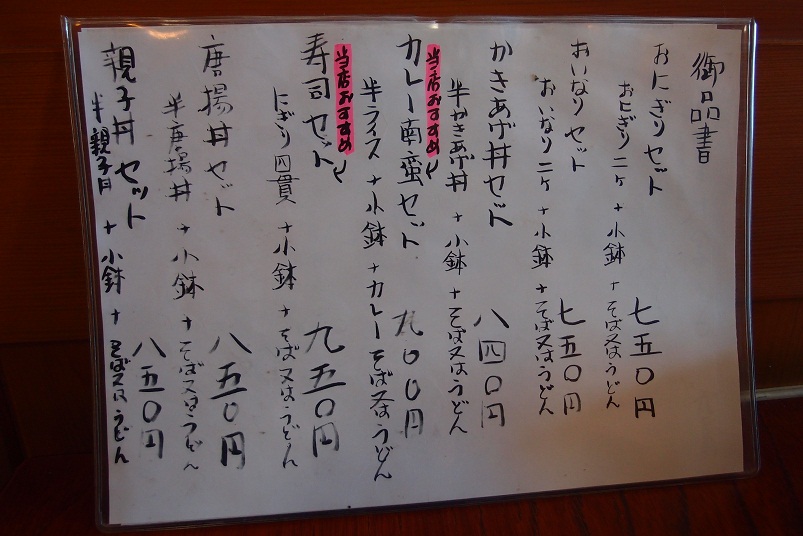 御品書
おにぎりセット 七五〇円
おにぎり二ヶ+小鉢+そば又はうどん
おいなりセット 七五〇円
おいなり二ヶ+小鉢+そば又はうどん
かきあげ丼セット 八四〇円
半かきあげ丼+小鉢+そば又はうどん
当店おすすめ
カレー南蛮セット 九〇〇円
半ライス+小鉢+カレーそば又はうどん
当店おすすめ
寿司セット 九五〇円
にぎり四貫+小鉢+そば又はうどん
唐揚丼セット 八五〇円
半唐揚丼+小鉢+そば又はうどん
親子丼セット 八五〇円
半親子丼+小鉢+そば又はうどん